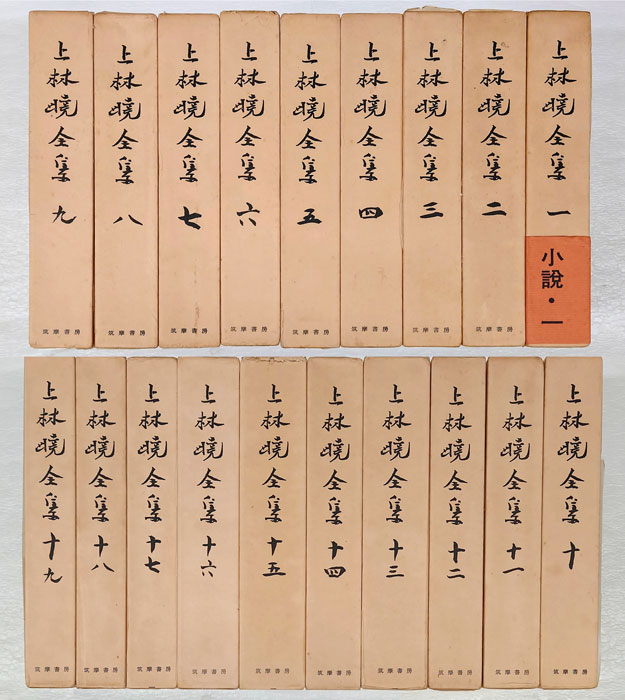 上林曉全集 一
小說・一
上林曉全集 二
筑摩書房
上林曉全集 三
筑摩書房
上林曉全集 四
筑摩書房
上林曉全集 五
筑摩書房
上林曉全集 六
筑摩書房
上林曉全集 七
筑摩書房
上林曉全集 八
筑摩書房
上林曉全集 九
筑摩書房
上林曉全集 十
筑摩書房
上林曉全集 十一
筑摩書房
上林曉全集 十二
筑摩書房
上林曉全集 十三
筑摩書房
上林曉全集 十四
筑摩書房
上林曉全集 十五
筑摩書房
上林曉全集 十六
筑摩書房
上林曉全集 十七
筑摩書房
上林曉全集 十八
筑摩書房
上林曉全集 十九
筑摩書房